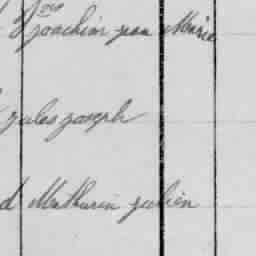 Joachim jean Marie
jules joseph
d Mathurin julien